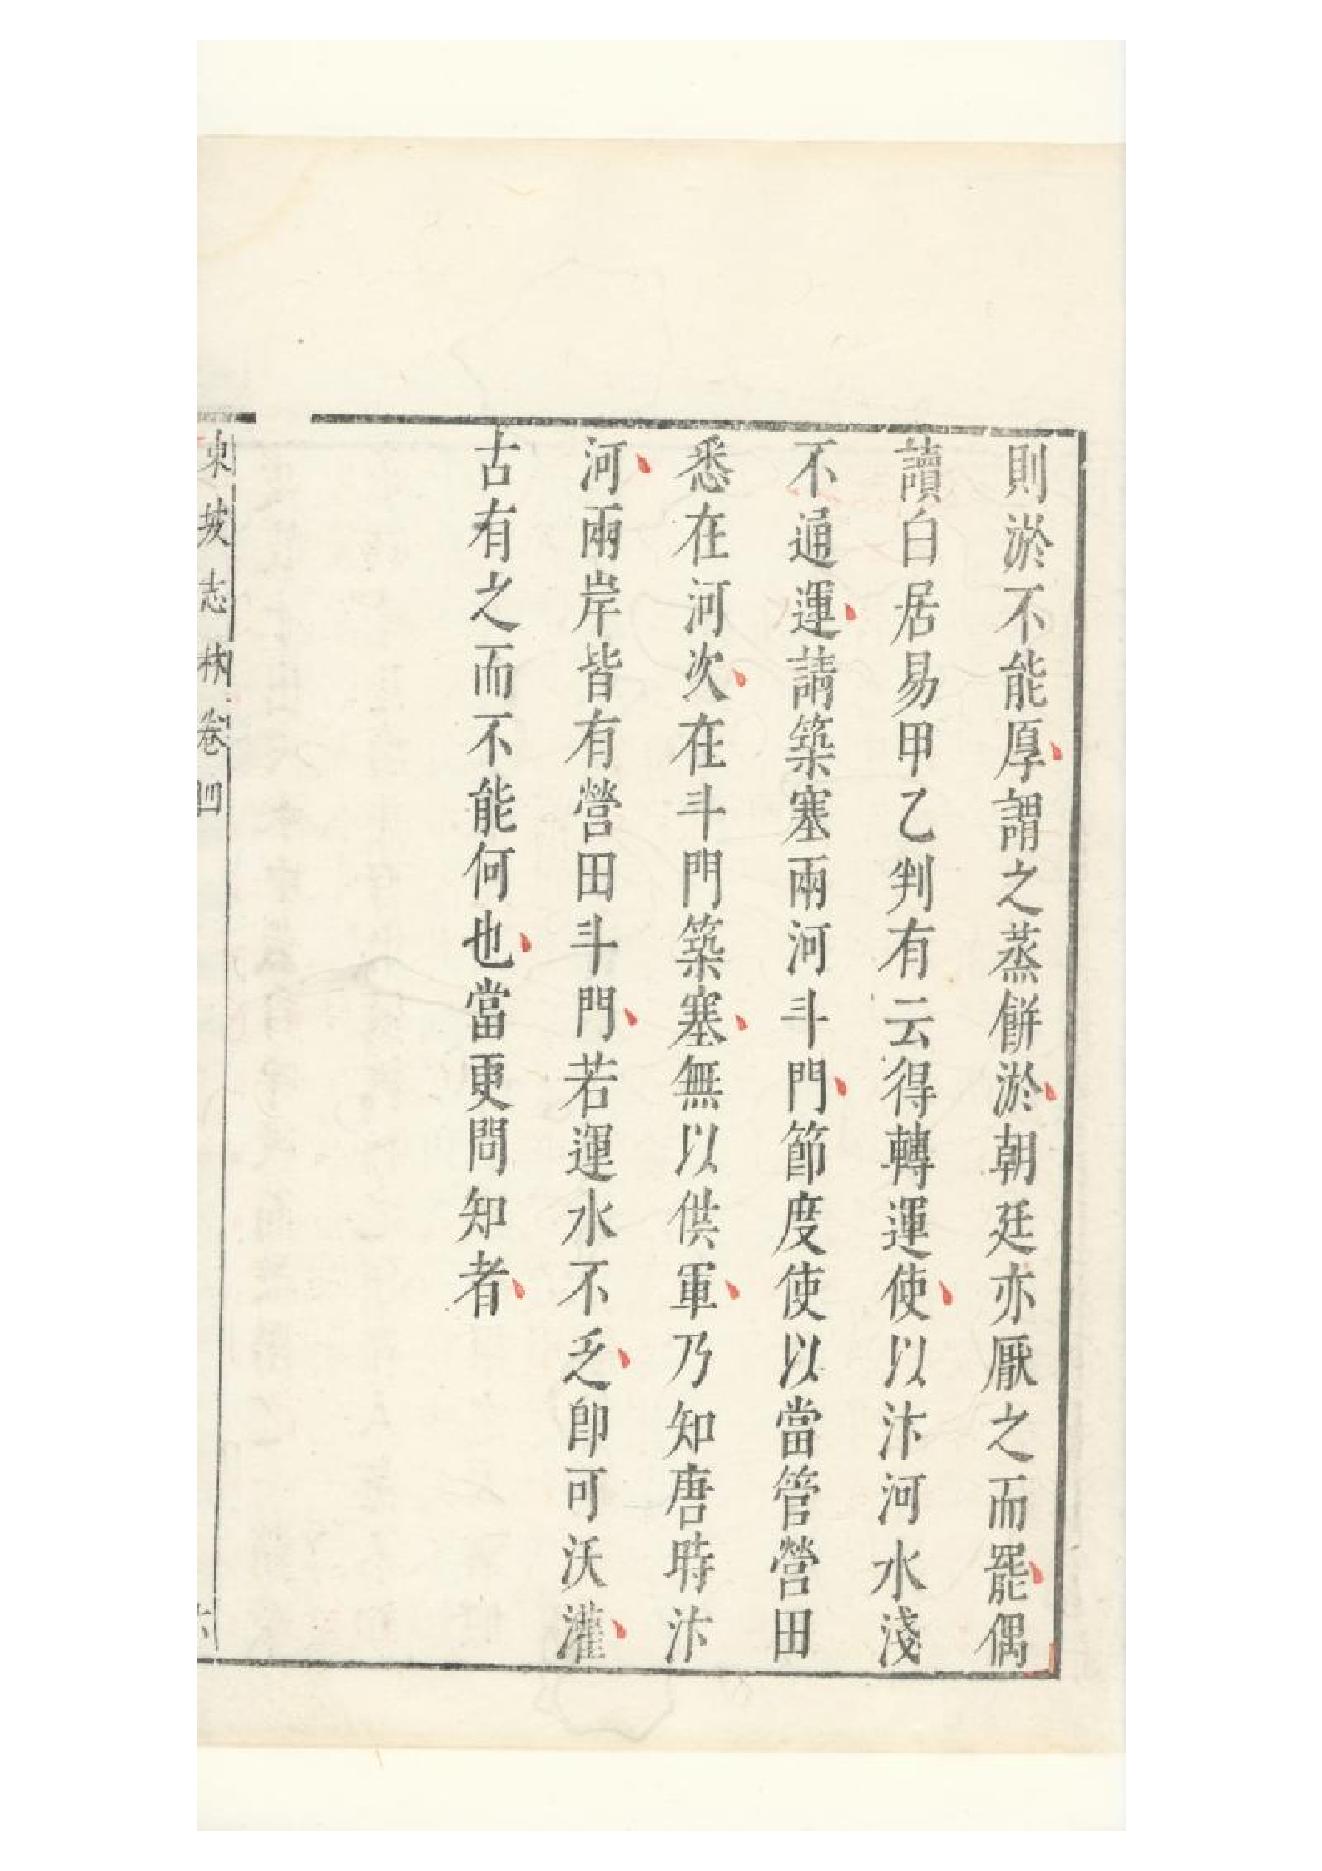 則淤不能厚謂之蒸餅淤朝廷亦厭之而罷偶
讀白居易甲乙判有云得轉運使以汴河水淺
不通運請築塞兩河斗門節度使以當管營田
悉在河次在斗門築塞無以供軍乃知唐時汴
河兩岸皆有營田斗門若運水不乏即可沃灌
古有之而不能何也當更問知者
東坡志林卷四
六